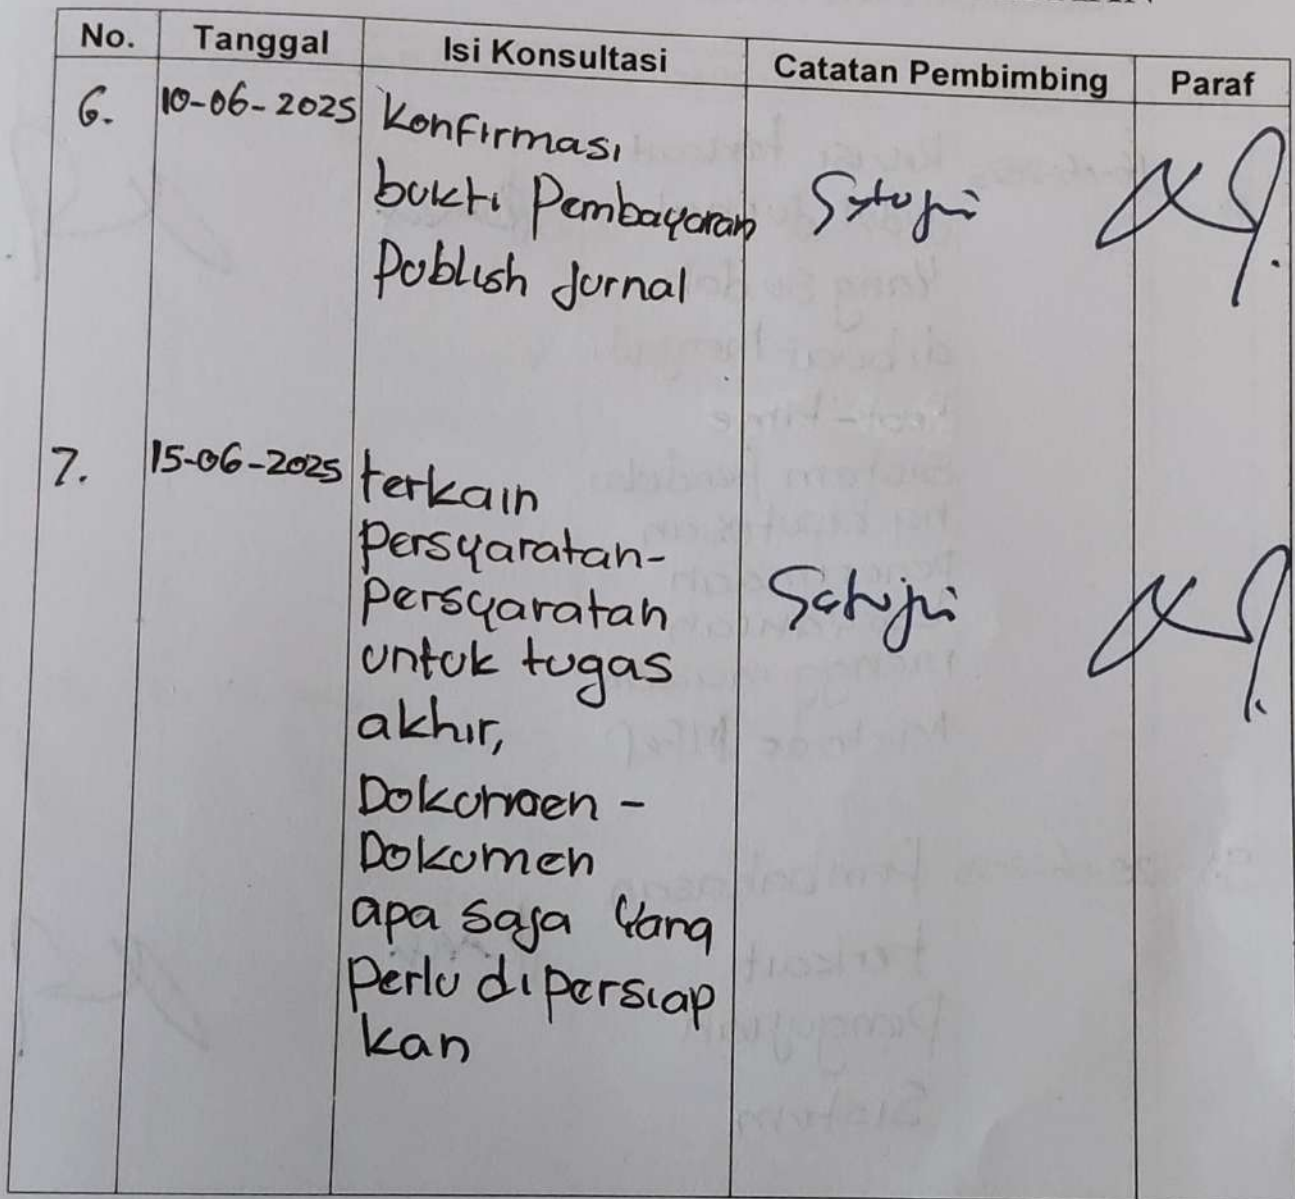 No. Tanggal Isi Konsultasi Catatan Pembimbing Paraf
6. 10-06-2025 Konfirmasi
bukti Pembayaran
Publish Jurnal
7. 15-06-2025 terkain
Persyaratan-
Persyaratan
untuk tugas
akhir,
Dokumen -
Dokumen
apa saja yang
Perlu dipersiap
kan